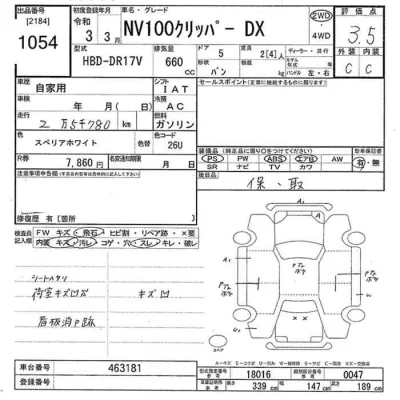 出品番号 [2184] 1054
初度登録年月 令和 3年 3月
車名・グレード NV100クリッパー DX
2WD ・ 4WD
評価点 3.5
型式 HBD-DR17V
排気量 660 cc
ドア 5
形状 バン
定員 2[4]人
ディーラー・並行
ハンドル 左・右
外装 C 内装 C
車歴 自家用
シフト IAT
セールスポイント
車検 年 月( 日)
冷房 AC
走行 2万5千780 km
燃料 ガソリン
色 スペリアホワイト 色替
色コード 26U
装備品
PS PW ABS エアB AW
SR ナビ TV カワ
有・無
R券 7,860 円
名義変更期限 月 日
後日品 保・取
注意事項申告欄
修復歴 有 [箇所 ]
検査員記入欄
FW キズ・飛石 ・ヒビ割・リペア跡・×要
内装 キズ・汚レ・コゲ・穴・スレ・キレ・破レ
シートヘタリ
荷室キズ凹 キズ凹
看板消シ跡
車台番号 463181
登録番号
型式指定番号 18016 類別区分番号 0047
長さ 339 cm 幅 147 cm 高さ 189 cm